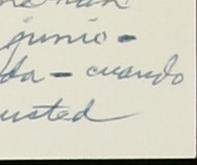 junio-
da - cuando
usted